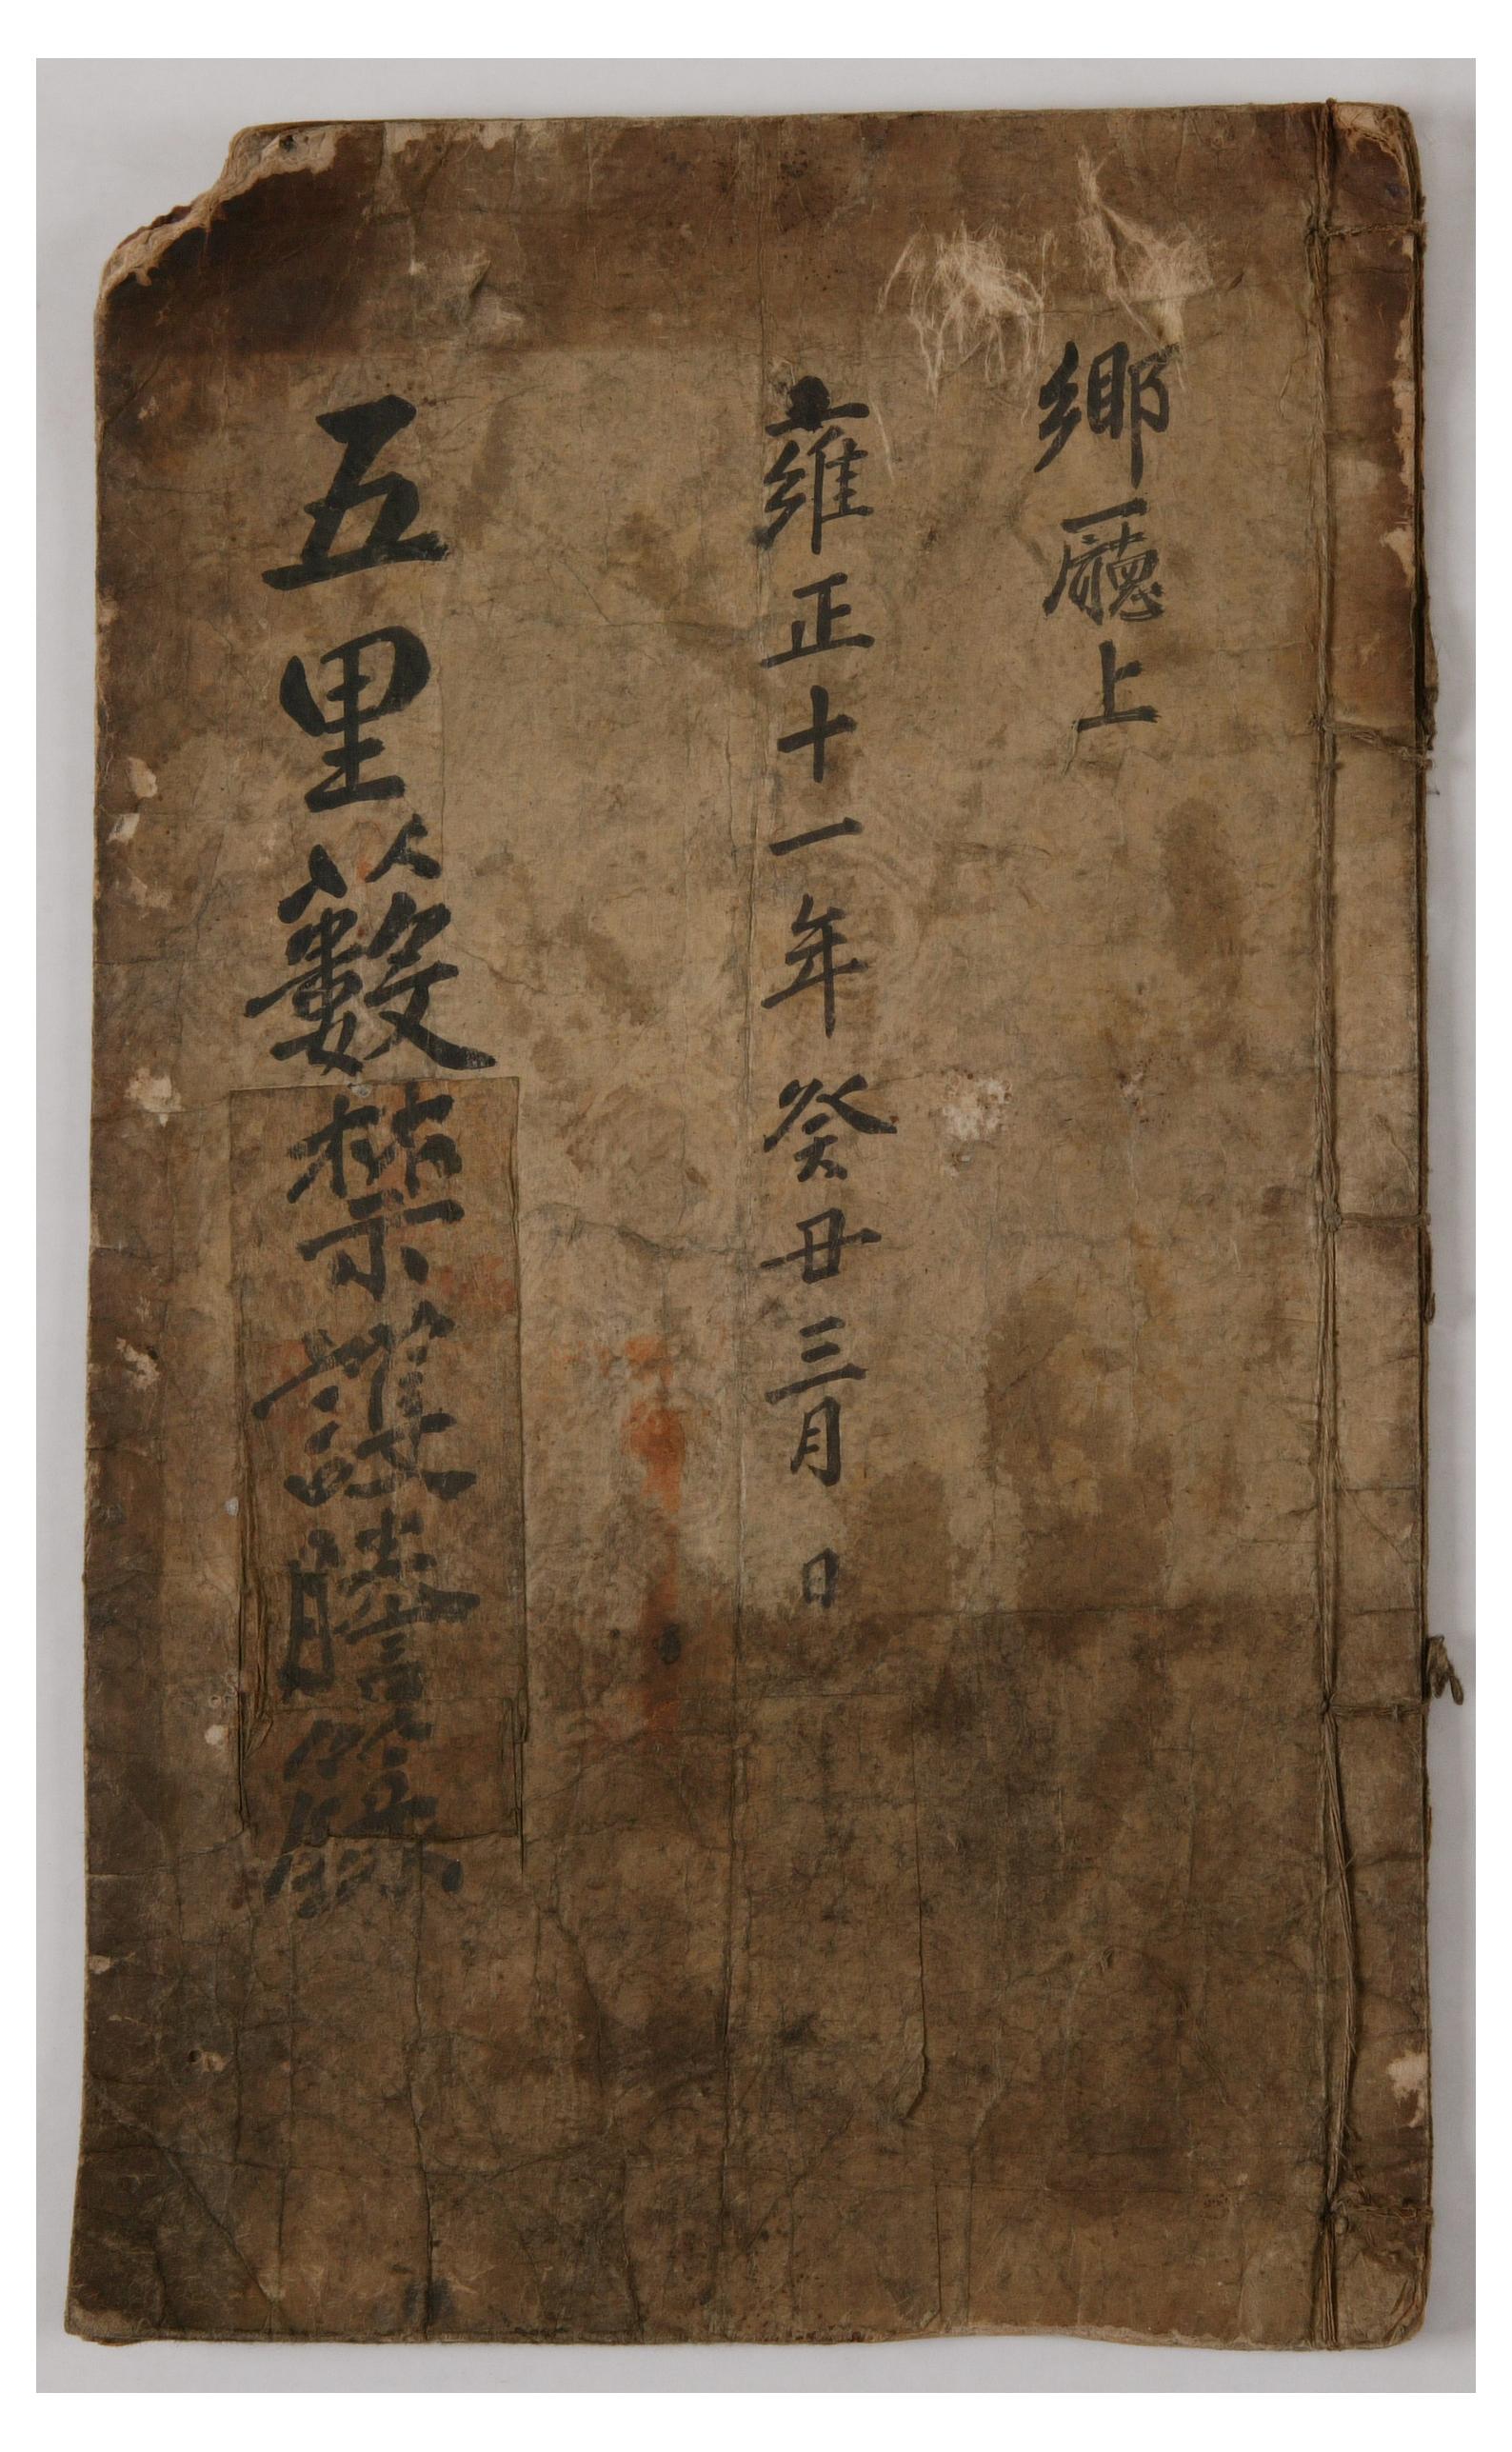 鄕廳上
雍正十一年癸丑三月 日
五里藪禁護謄錄